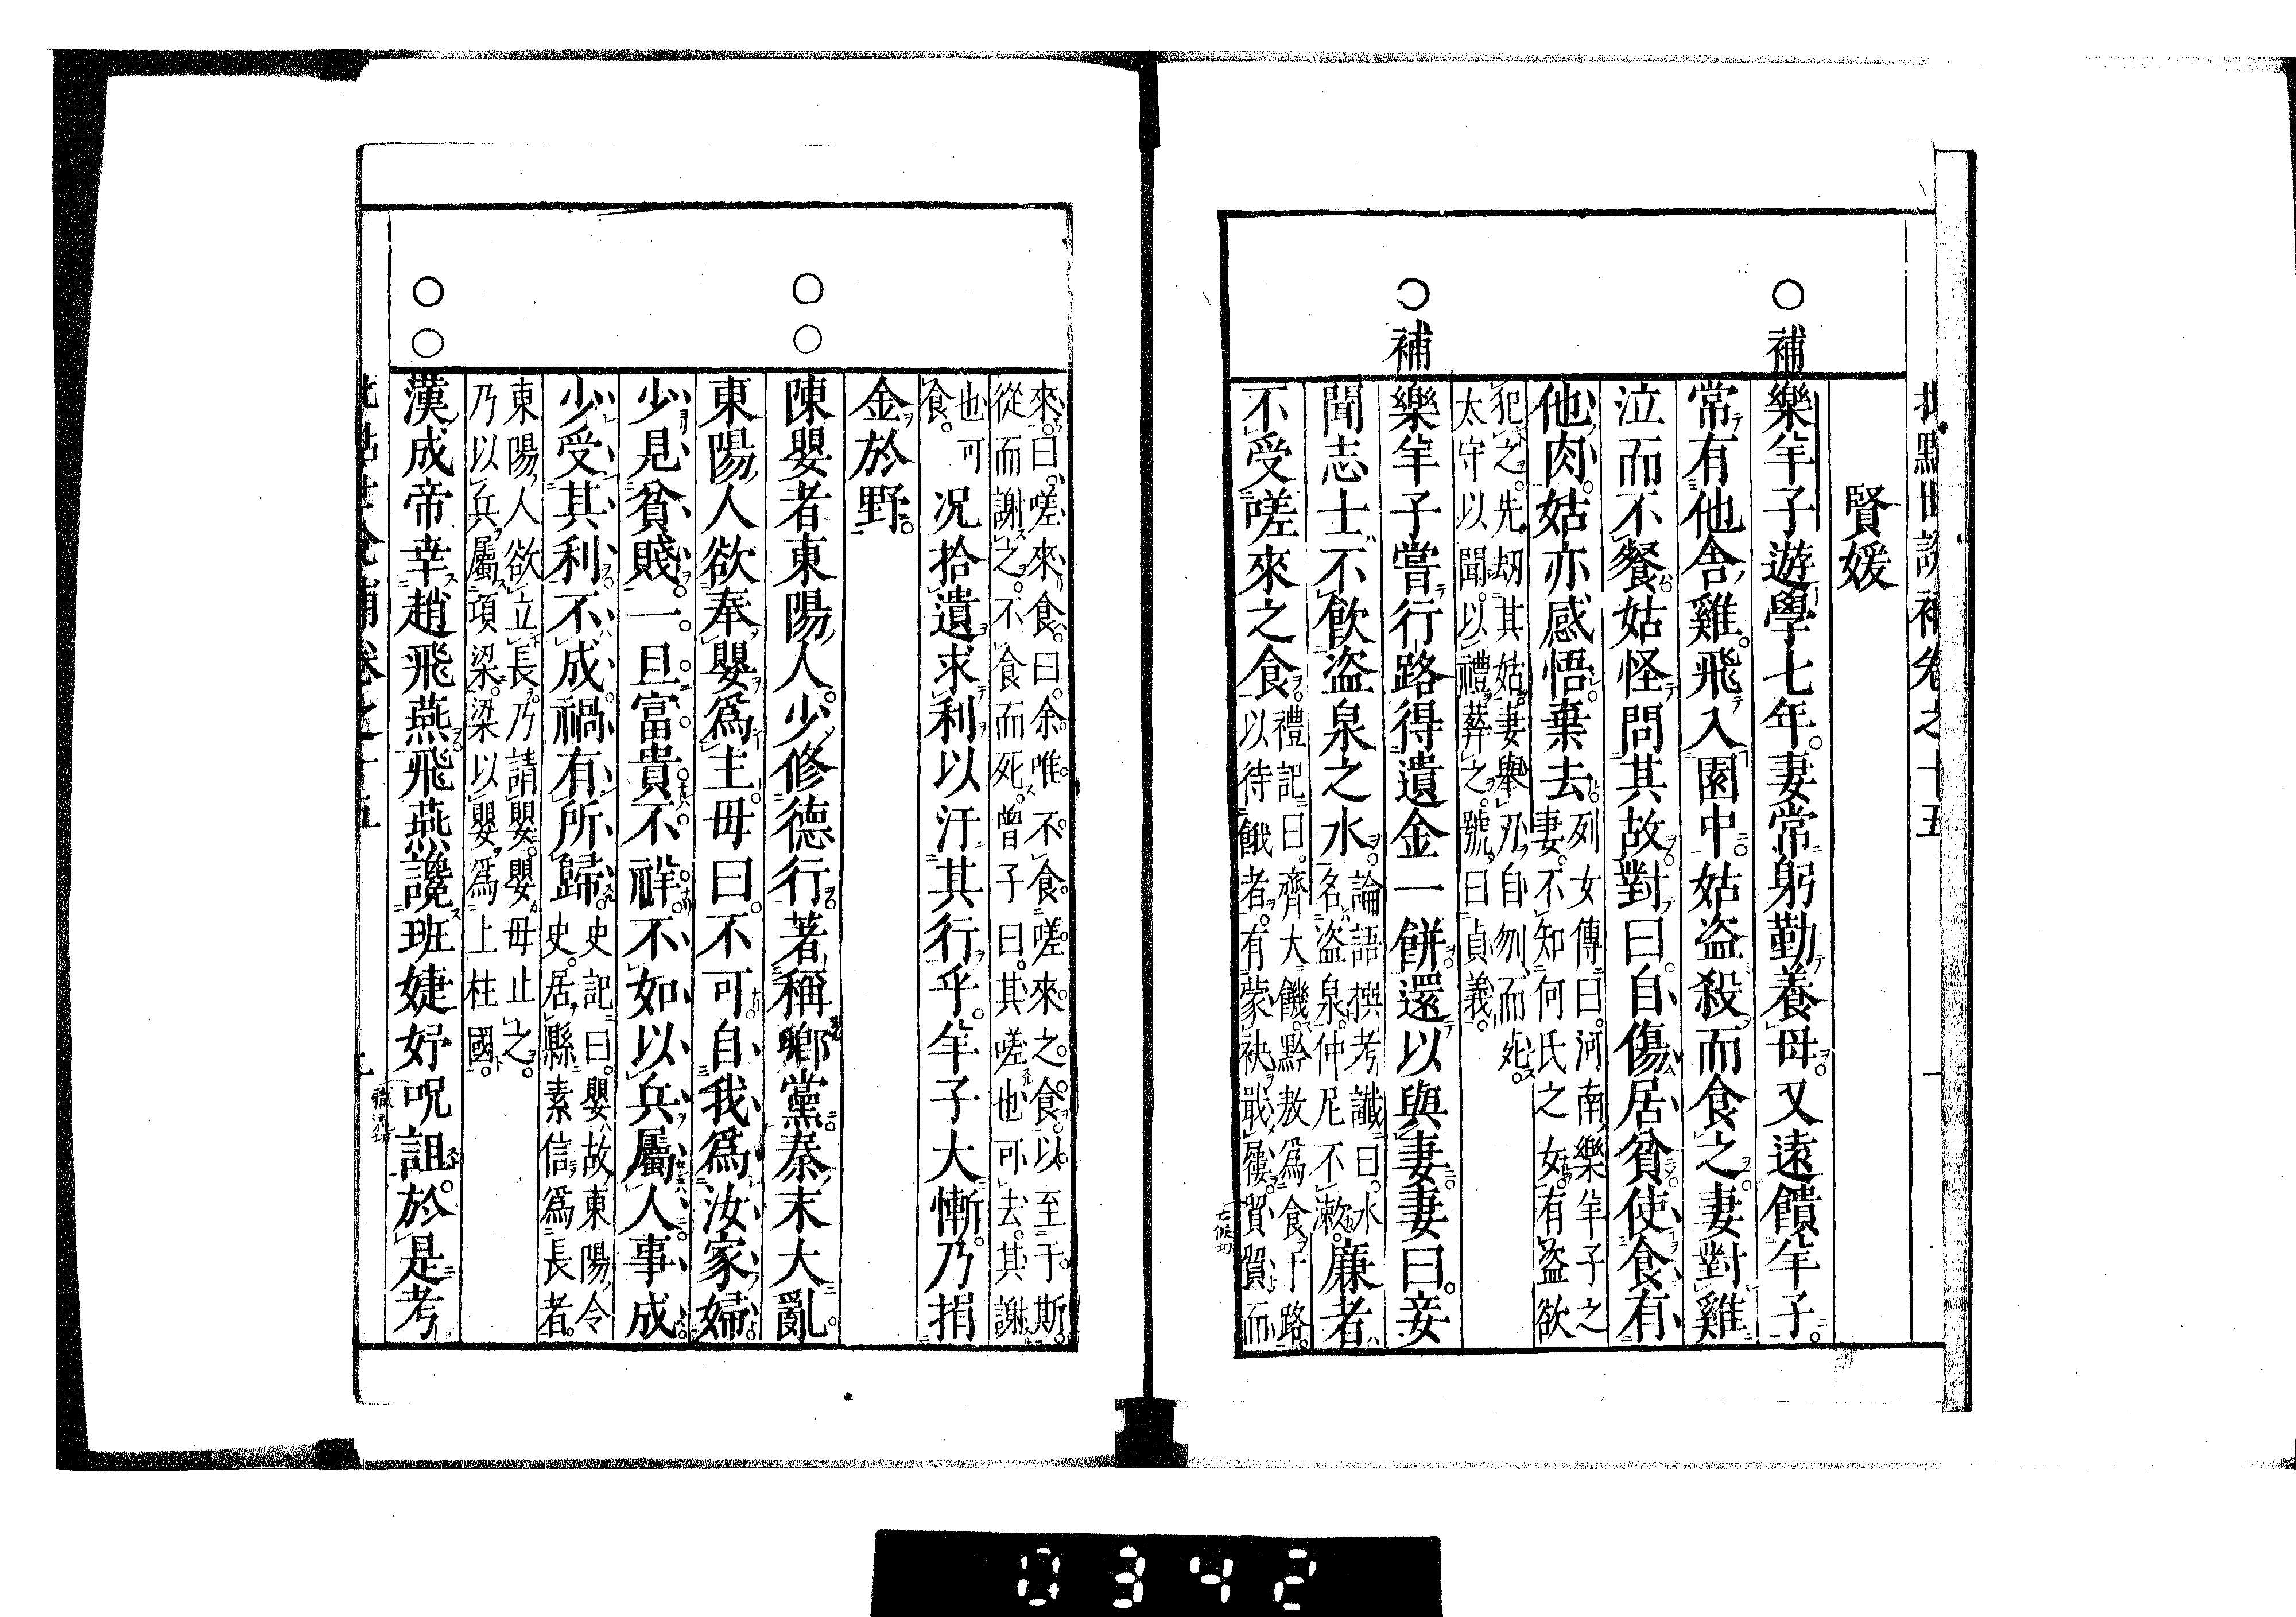 批點世說補卷之十五
一
賢媛
○補
樂羊子遊學七年。妻常躬勤養母。又遠饋羊子。
常有他舍雞。飛入園中。姑盜殺而食之。妻對雞
泣而不餐。姑怪問其故。對曰。自傷居貧。使食有
他肉。姑亦感悟。棄去。
列女傳曰。河南樂羊子之
妻。不知何氏之女。有盜欲
犯之。先劫其姑。妻舉刃。自刎而死。
太守以聞。以禮葬之。號曰貞義。
○補
樂羊子嘗行路得遺金一餅。還以與妻。妻曰。妾
聞志士不飲盜泉之水。
論語撰考讖曰。水
名盜泉。仲尼不漱。
廉者
不受嗟來之食。
禮記曰。齊大饑。黔敖為食于路。
以待餓者。有蒙袂戢屨。貿貿而
來。曰。嗟來食。曰。余唯不食嗟來之食。以至于斯。
從而謝之。不食而死。曾子曰。其嗟也可去。其謝
也可
食。
況拾遺求利以汙其行乎。羊子大慚。乃捐
金於野。
○○
陳嬰者東陽人。少修德行。著稱鄉黨。秦末大亂。
東陽人欲奉嬰為主。母曰。不可。自我為汝家婦。
少見貧賤。一旦富貴。不祥。不如以兵屬人。事成
少受其利。不成禍有所歸。
史記曰。嬰故東陽令
史。居縣素信。為長者。
東陽人欲立長。乃請嬰。嬰母止之。
乃以兵屬項梁。梁以嬰為上柱國。
○○
漢成帝幸趙飛燕。飛燕讒班婕妤呪詛。於是考